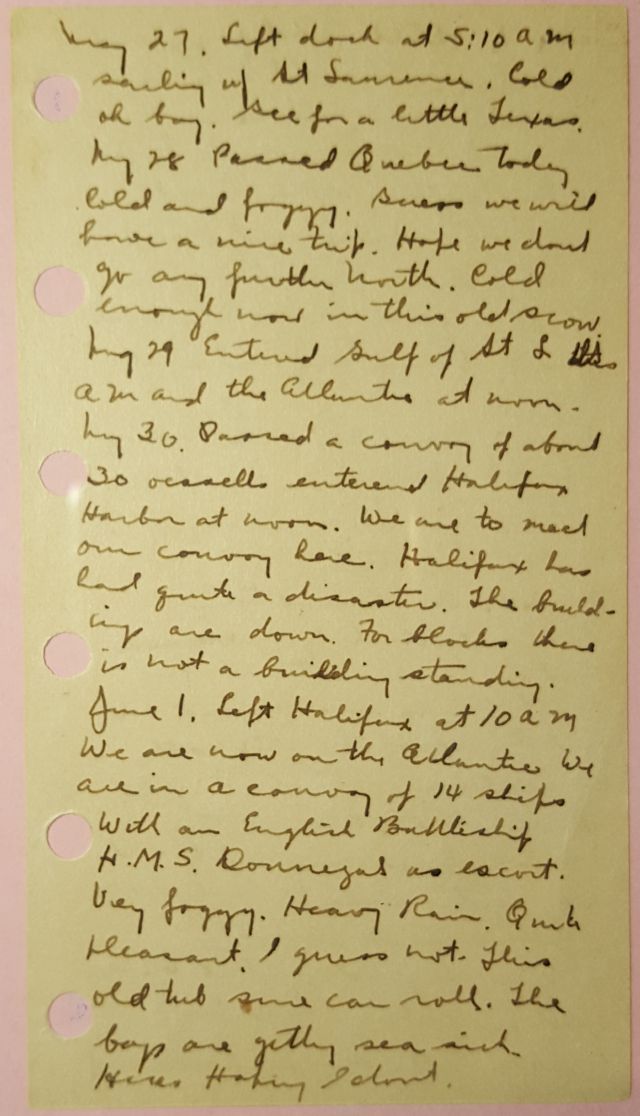 May 27. Left dock at 5:10 A M
sailing up St Lawrence. Cold
oh boy. Gee for a little Texas.
May 28 Passed Quebec today
Cold and foggy. Guess we will
have a nice trip. Hope we dont
go any further North. Cold
enough now in this old scow.
May 29 Entered Gulf of St L this
A M and the Atlantic at noon.
May 30. Passed a convoy of about
30 vessells entered Halifax
Harbor at noon. We are to meet
our convoy here. Halifax has
had quite a disaster. The build-
ings are down. For blocks there
is not a building standing.
June 1. Left Halifax at 10 A M
We are now on the Atlantic We
are in a convoy of 14 ships
With an English Battleship
H.M.S. Donnegal as escort.
Very foggy. Heavy Rain. Quite
pleasant. I guess not. This
old tub sure can roll. The
boys are getting sea sick.
Heres Hoping I dont.